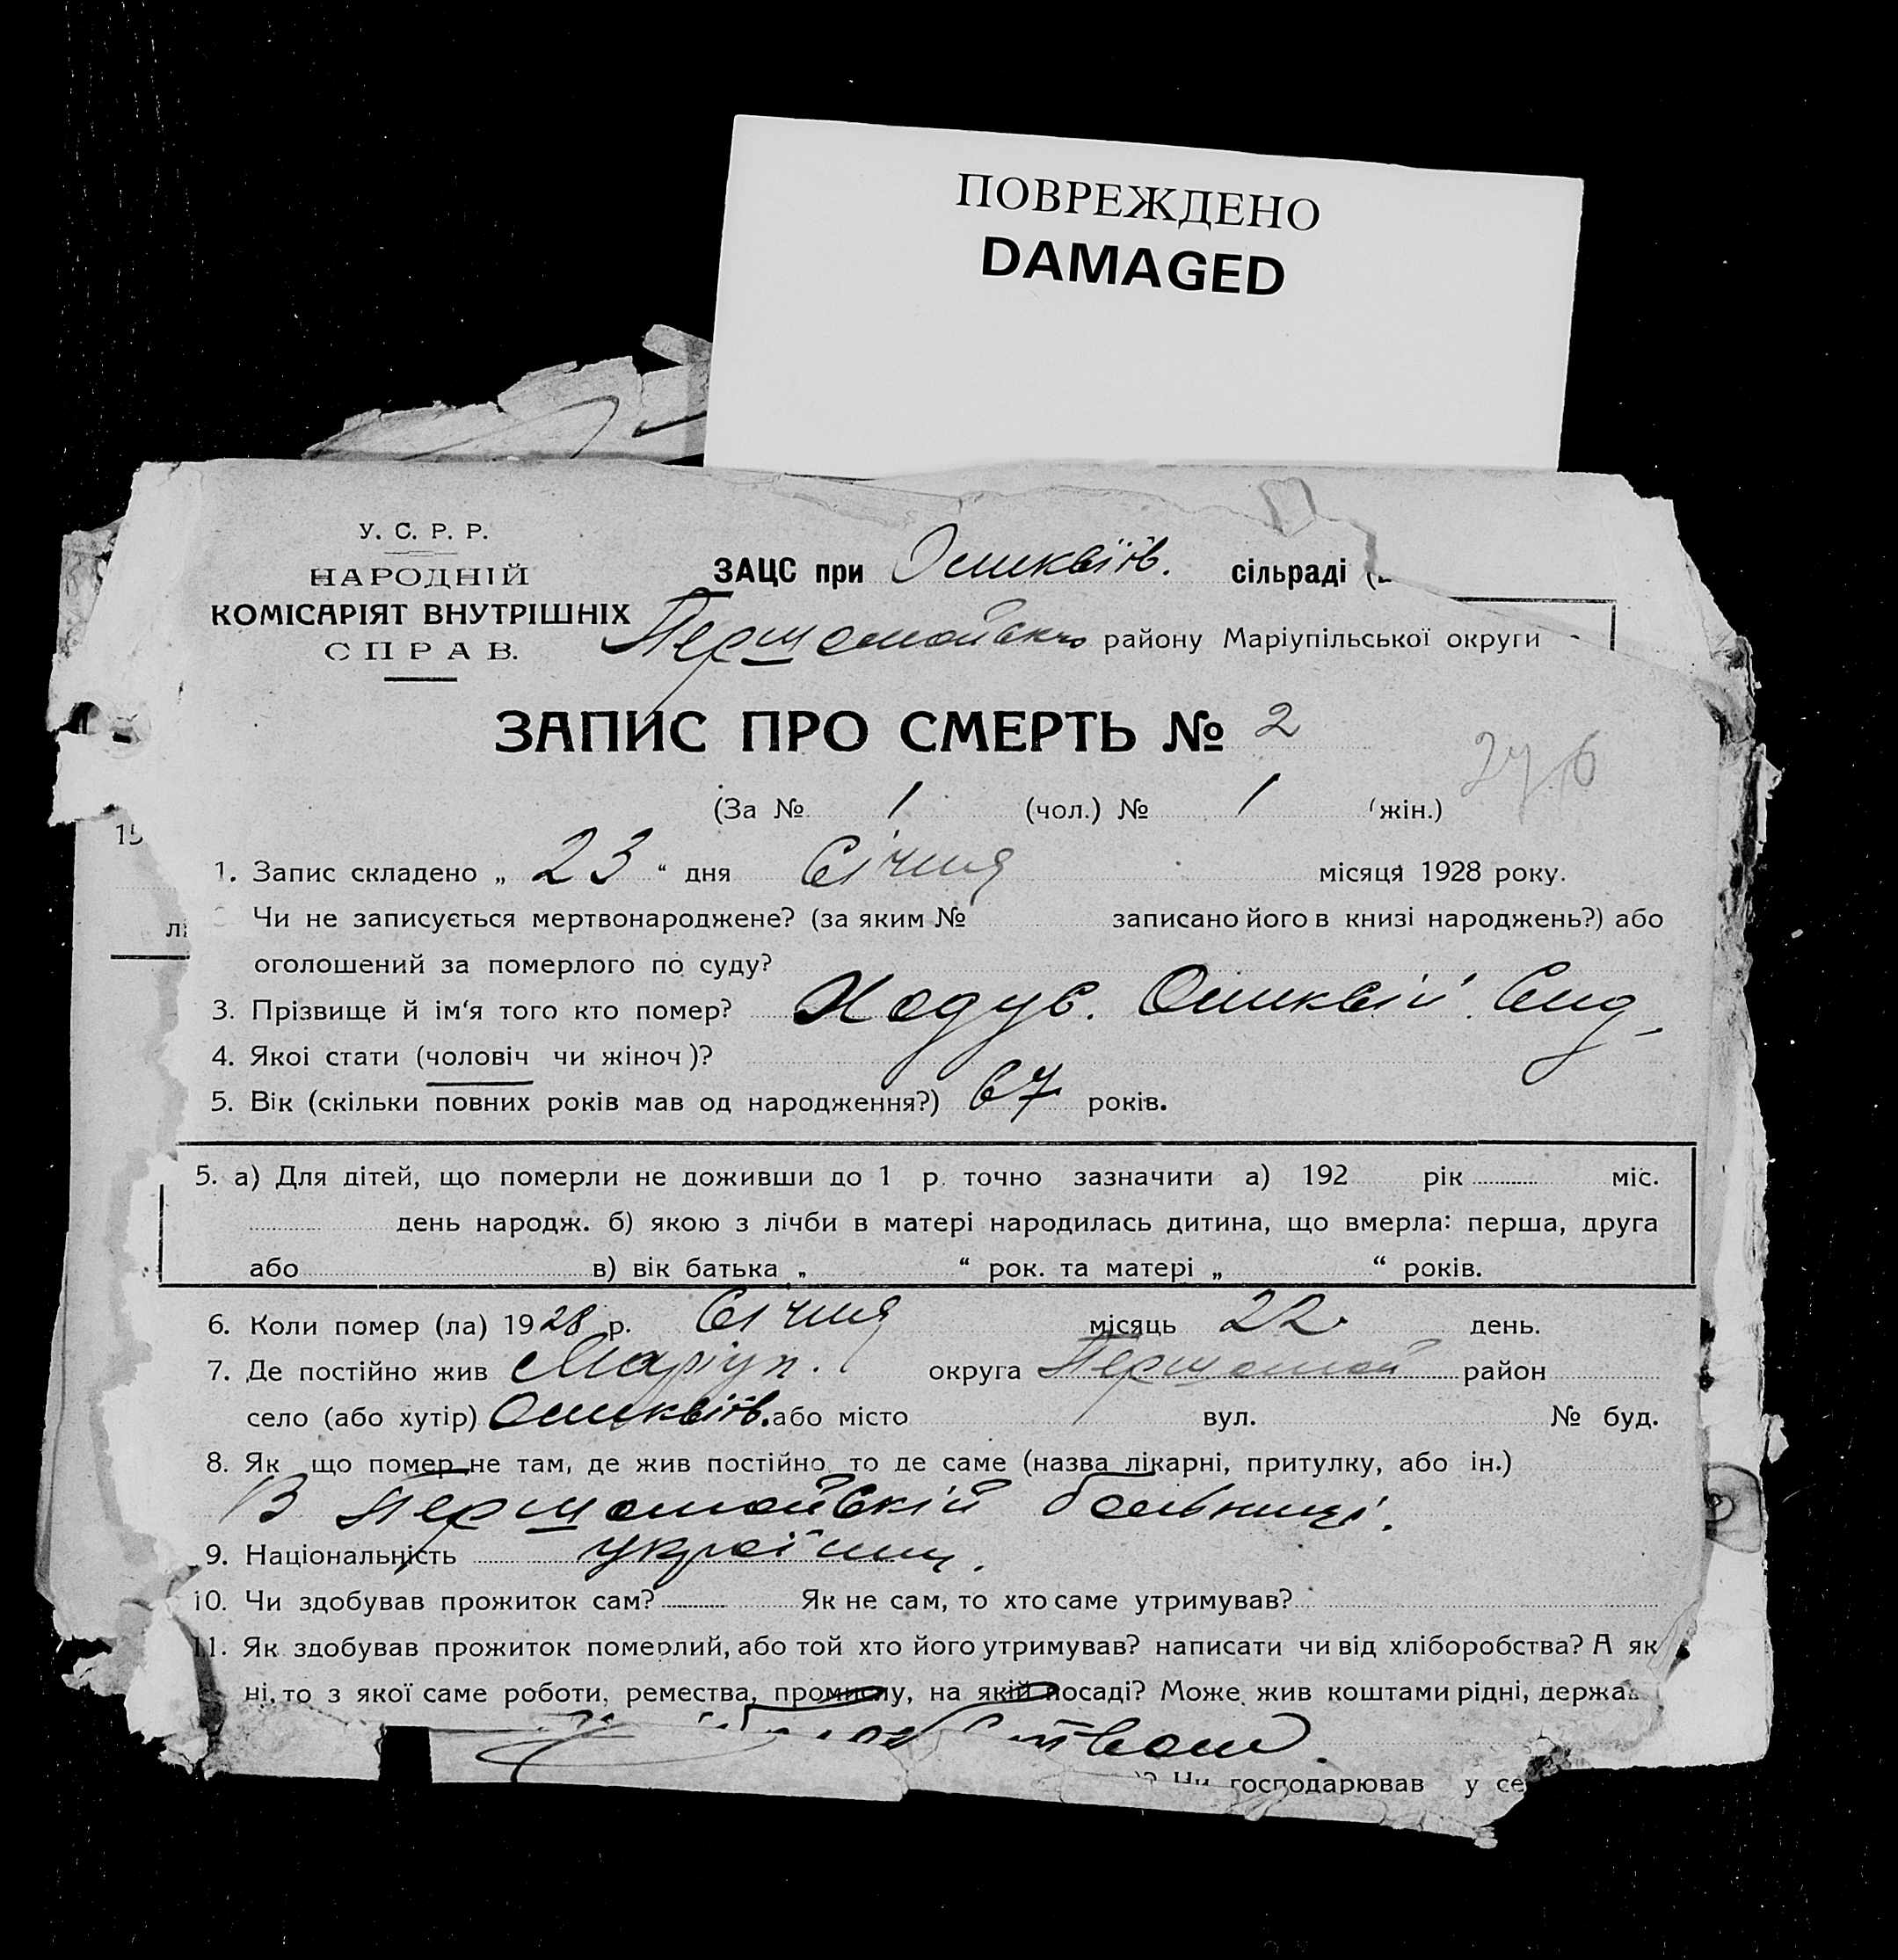 ПОВРЕЖДЕНО
DAMAGED
У. С. Р. Р.
НАРОДНІЙ
КОМІСАРІЯТ ВНУТРІШНІХ
СПРАВ.
ЗАЦС при сільраді
Першомайсько району Маріупільської округи
ЗАПИС ПРО СМЕРТЬ № 2
276
(За № 1 (чол.) № 1 (жін.)
15
1. Запис складено „ 23 “ дня Січня місяця 1928 року.
Чи не записується мертвонароджене? (за яким № записано його в книзі народжень?) або
оголошений за померлого по суду?
3. Прізвище й ім‘я того кто помер?
4. Якоі стати (чоловіч чи жіноч)?
5. Вік (скільки повних років мав од народження?) 67 років.
5. а) Для дітей, що померли не доживши до 1 р. точно зазначити а) 192 рік міс.
день народж. б) якою з лічби в матері народилась дитина, що вмерла: перша, друга
або в) вік батька „ “ рок. та матері „ “ років.
6. Коли помер (ла) 1928 р. Січня місяць 22. день.
7. Де постійно жив Маріуп. округа Першомай район
село (або хутір) або місто вул. № буд.
8. Як що помер не там, де жив постійно, то де саме (назва лікарні, притулку, або ін.)
В Першомайскій больниці.
9. Національність українц.
10. Чи здобував прожиток сам? Як не сам, то хто саме утримував?
11. Як здобував прожиток померлий, або той хто його утримував? написати чи від хліборобства? А як
ні, то з якої саме роботи, ремества, промислу, на якій посаді? Може жив коштами рідні, держа
господарював у се